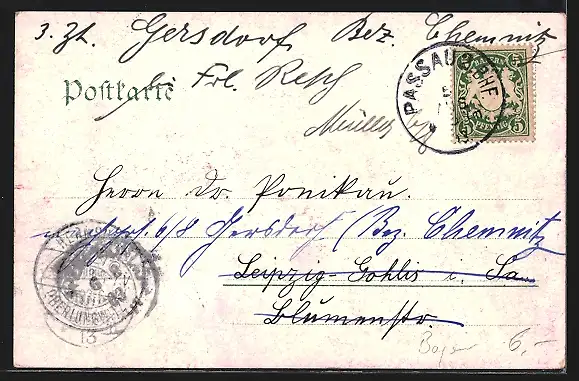 z. Zt. Gersdorf Bez. Chemnitz
b/ Frl. Resch
Postkarte
PASSAU BHF.
5 PFENNIG 5
Herrn Dr. Ponikau.
Gersdorf (Bez. Chemnitz
Leipzig-Gohlis i. Sa.
Blumenstr.
OBERLUNGWITZ
Bayer 6,-